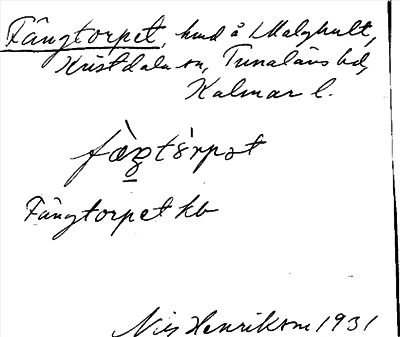 Fångtorpet, hmd å Malghult,
Kristdala sn, Tunaläns hd,
Kalmar l.
fàŋtórpət
Fångtorpet kb
Nils Henrikson 1931